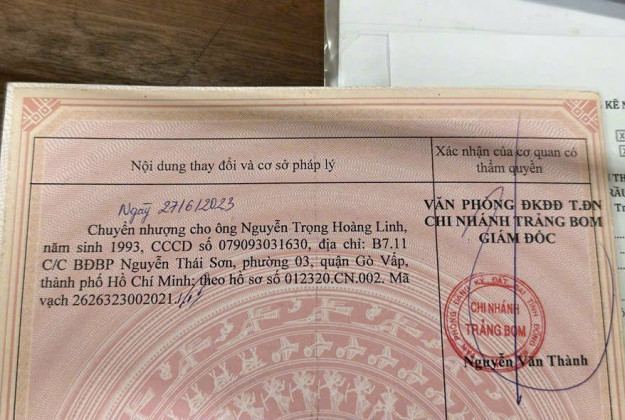 Nội dung thay đổi và cơ sở pháp lý
Xác nhận của cơ quan có
thẩm quyền
Ngày 27/6/2023
Chuyển nhượng cho ông Nguyễn Trọng Hoàng Linh,
năm sinh 1993, CCCD số 079093031630, địa chỉ: B7.11
C/C BĐBP Nguyễn Thái Sơn, phường 03, quận Gò Vấp,
thành phố Hồ Chí Minh; theo hồ sơ số 012320.CN.002. Mã
vạch 2626323002021.
VĂN PHÒNG ĐKĐĐ T.ĐN
CHI NHÁNH TRẢNG BOM
GIÁM ĐỐC
VĂN PHÒNG ĐĂNG KÝ ĐẤT ĐAI TỈNH ĐỒNG
CHI NHÁNH
TRẢNG BOM
Nguyễn Văn Thành
KÊ